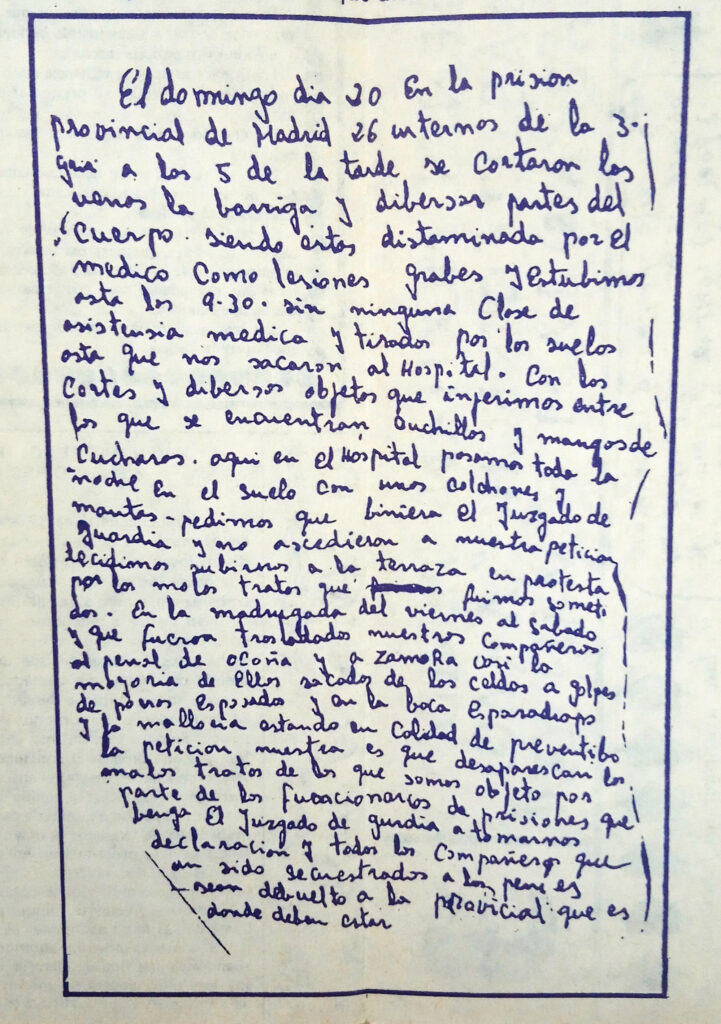 El domingo dia 20 En la prision
provincial de Madrid 26 internos de la 3.
a las 5 de la tarde se cortaron las
venas la barriga y diberсas partes del
cuerpo. siendo estas distaminada por El
medico como lesiones grabes y Estubimos
asta las 9-30. sin ninguna clase de
asistensia medica y tirados por los suelos
asta que nos sacaron al Hospital. Con los
cortes y dibersos objetos que injerimos entre
los que se encuentran cuchillos y mangos de
cucharas. aqui en el Hospital pasamos toda la
noche En el suelo con unos colchones y
mantas - pedimos que biniera El Juzgado de
guardia y no ascedieron a nuestra peticion
decidimos subirnos a la terraza en protesta
por los malos tratos que fuimos someti
dos. En la madrugada del viernes al sabado
y que fueron trasladados nuestros compañeros
al penal de ocaña y a zamoRa casi la
mayoria de Ellos sacados de las celdas a golpes
de porras Esposados y en la boca Esparadrapo
y la malloria estando en calidad de preventibo
la peticion nuestra es que desaparescan los
malos tratos de los que somos objeto por
parte de los funcionarios de prisiones que
benga El Juzgado de gurdia a tomarnos
declaracion y todos los compañeros que
an sido secuestrados a los penales
sean debuelto a la provicial que es
donde deben estar